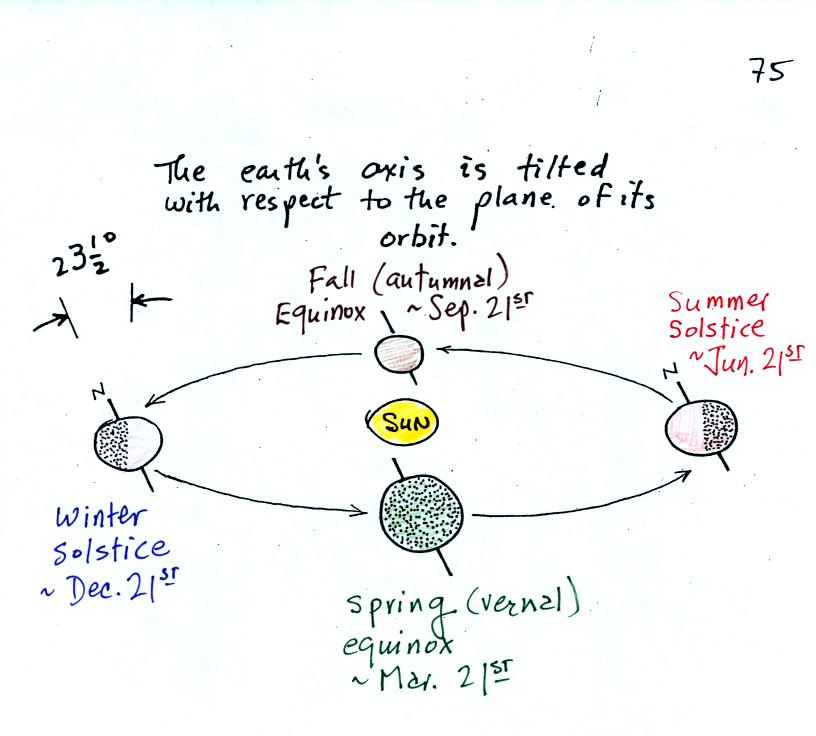 75
The earth's axis is tilted
with respect to the plane. of its
orbit.
23 1/2°
Fall (autumnal)
Equinox ~ Sep. 21st
Summer
Solstice
~Jun. 21st
N
N
SUN
Winter
Solstice
~ Dec. 21st
Spring (vernal)
equinox
~ Mar. 21st